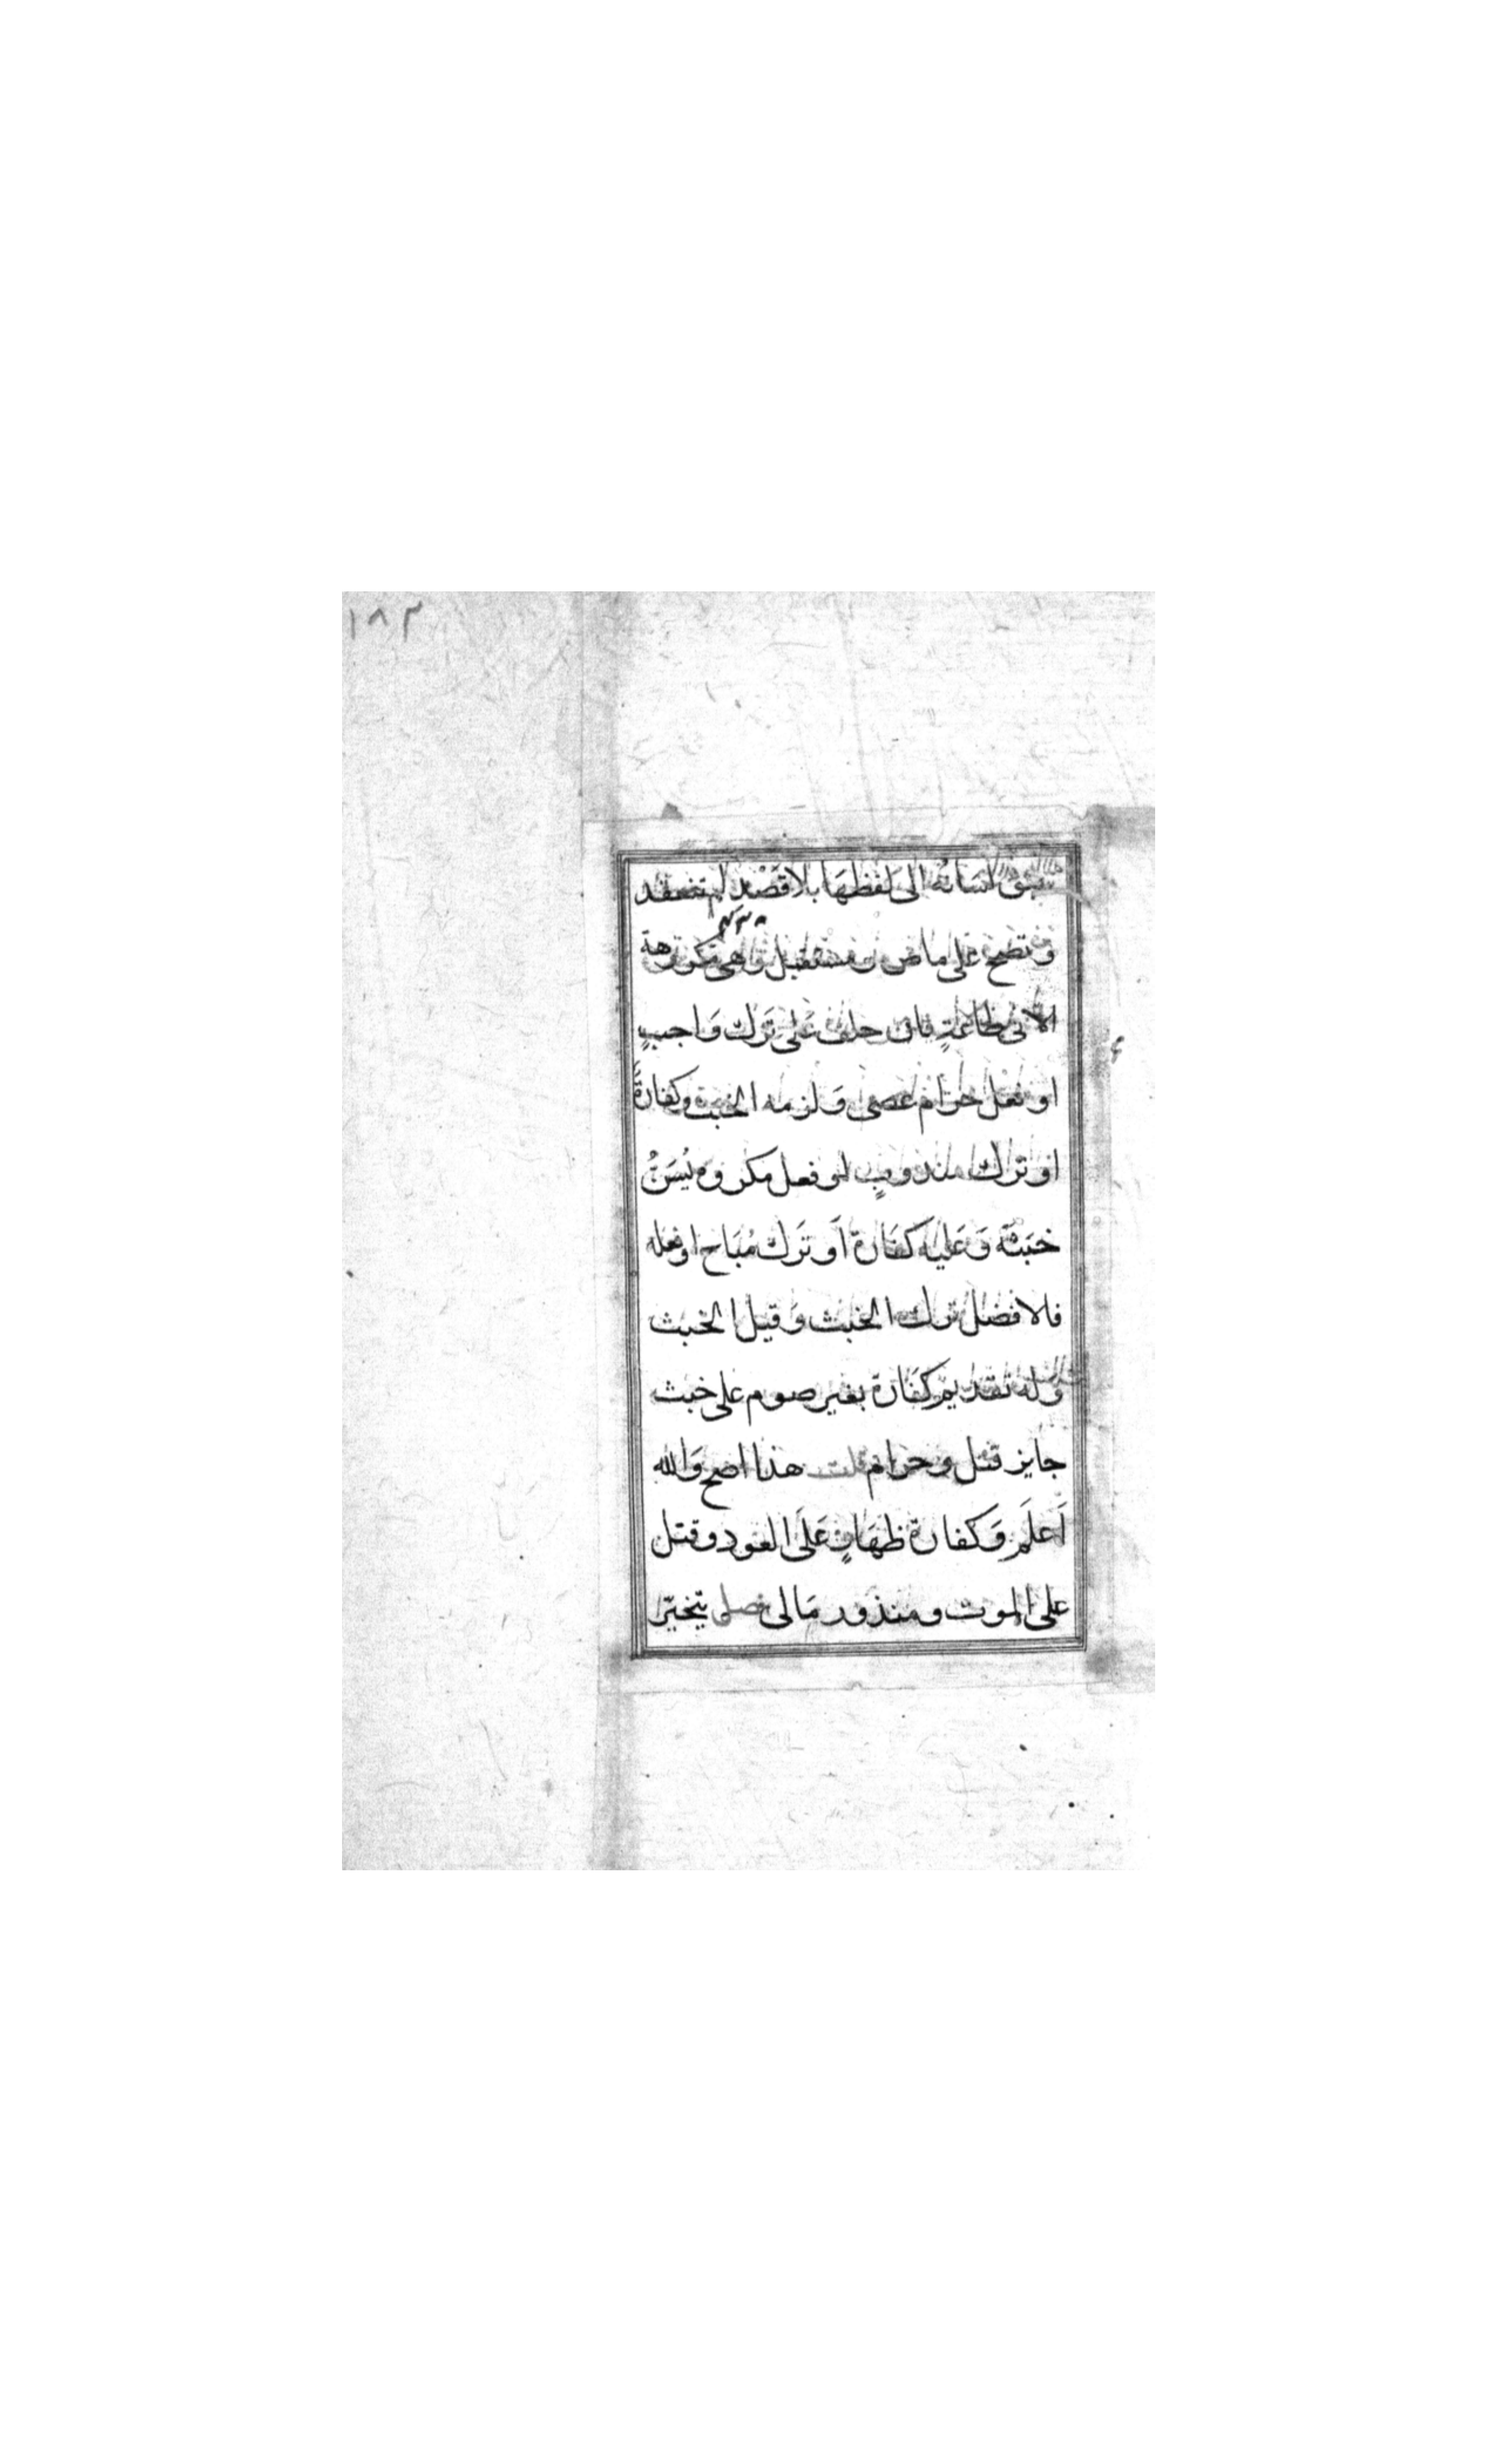 ١٨٣
سبق لسَانُه الى لَفظهَا بلا قَصْدٍ لم تنعقد
وَتصح عَلى ماض ومستقبل وَهى مكروهة
الا فى طَاعَةٍ فان حلف عَلى تَرك وَاجبٍ
او فعل حرَام عصى وَلزمه الخبث وكفارةً
او ترك مندوبٍ او فعل مكروه يُسَنُّ
خبَثه وَعَليه كفَارة اَو تَرك مُبَاح او فعله
فالافضل ترك الخبث وَقيل الخبث
وَله تقديم كفَارة بغير صوم على خبث
جايز قتل وحرام قلت هذا اصح وَالله
اَعلَم وَكفارة ظهَارٍ عَلَى العَود وقتل
على الموت ومنذور مَالى فصل يتخيّر